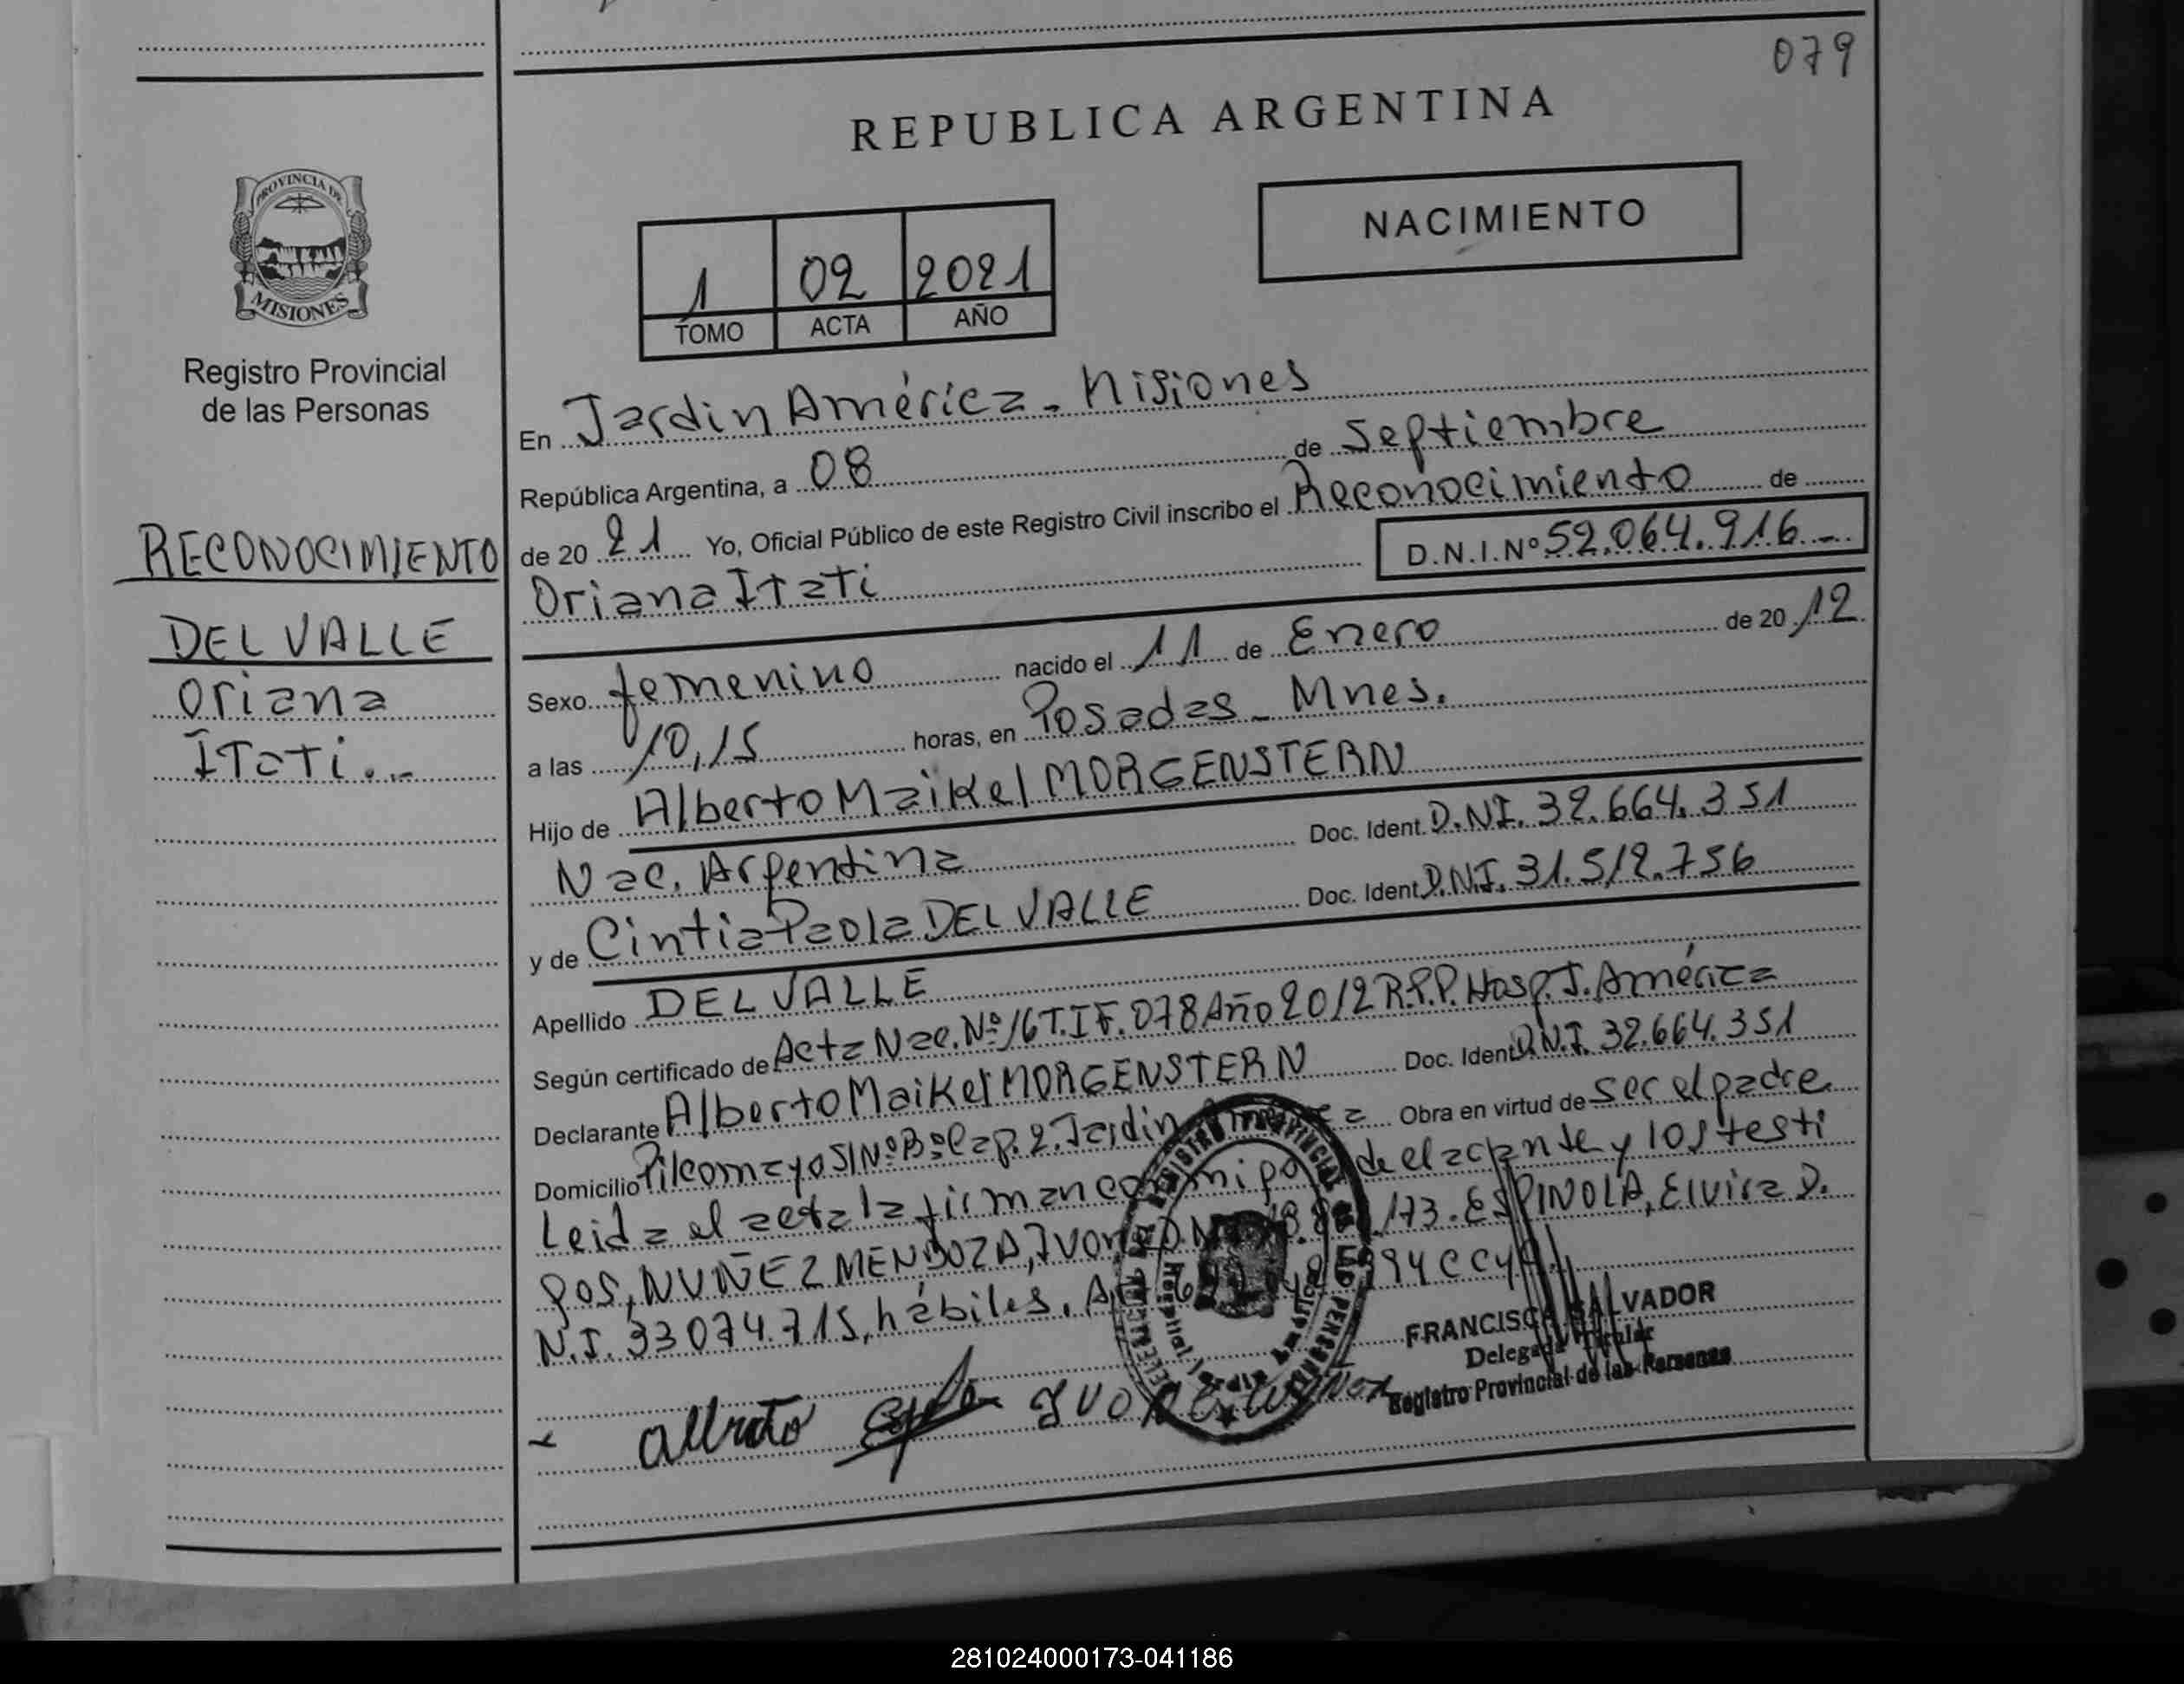 079
REPUBLICA ARGENTINA
NACIMIENTO
PROVINCIA DE
MISIONES
1 02 2021
TOMO ACTA AÑO
Registro Provincial
de las Personas
RECONOCIMIENTO
DEL VALLE
Oriana
Itati..-
En Jardin América - Misiones
República Argentina, a 08 de Septiembre
de 20 21 Yo, Oficial Público de este Registro Civil inscribo el Reconocimiento de
Oriana Itati D.N.I.Nº 52.064.916.-
Sexo femenino nacido el 11 de Enero de 20 12
a las 10,15 horas, en Posadas - Mnes.
Hijo de Alberto Maikel MORGENSTERN
Nac. Argentina Doc. Ident. D.NI. 32.664.351
y de Cintia Paola DEL VALLE Doc. Ident D.N.I. 31.512.756
Apellido DEL VALLE
Según certificado de Acta Nac. Nº 16 T.I F. 078 Año 2012 R.P.P. Hosp. J. América
Declarante Alberto Maikel MORGENSTERN Doc. Ident D.N.I. 32.664.351
Domicilio Pilcomayo S/Nº Bº Cap. 2. Jardin Obra en virtud de ser el padre
Leida el acta la firman de el acante y los testi
gos, NUÑEZ MENDOZA, Ivon 173. ESPINOLA, Elvira D.
N.I. 33074.715, hábiles. 26994 CCyA.
FRANCISCA SALVADOR
Delegada Titular
Registro Provincial de las Personas
Alberto
281024000173-041186